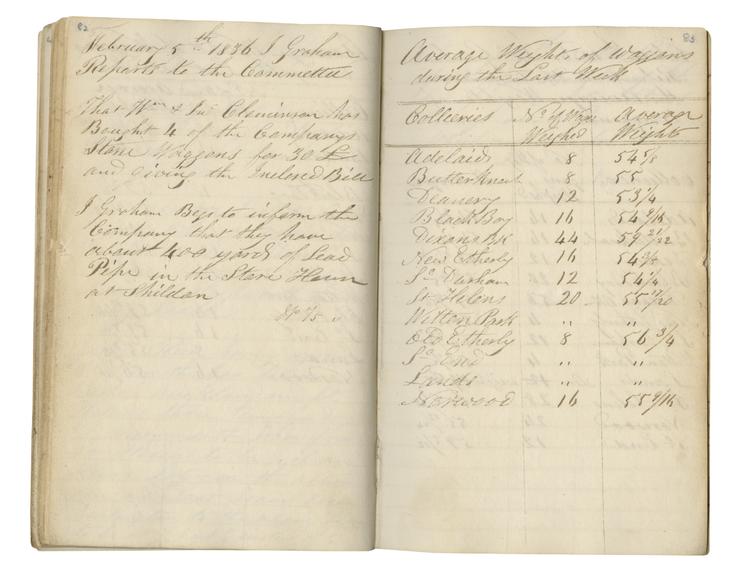 82
February 5th 1836 J Graham
Reports to the Committee
That Wm & Jno Clominson has
Bought 4 of the Companys
Stone Waggons for 30 £
and Giving the Inclosed Bill
J Graham Begs to inform the
Company that they have
about 400 yards of Lead
Pipe in the Store House
at Shildon
83
Average Weights of Waggons
during the Last Week
Collieries No of Wgns Weighed Average Weights
Adelaide 8 54 5/8
Butterknowle 8 55
Deanery 12 53 1/4
Black Boy 16 54 9/16
Dixons 44 59 21/22
New Etherly 16
So Durham 12 54 1/4
St Helens 20 55 17/20
Witton Park " "
Old Etherly 8 56 3/4
So End " "
Lands " "
Norwood 16 55 9/16